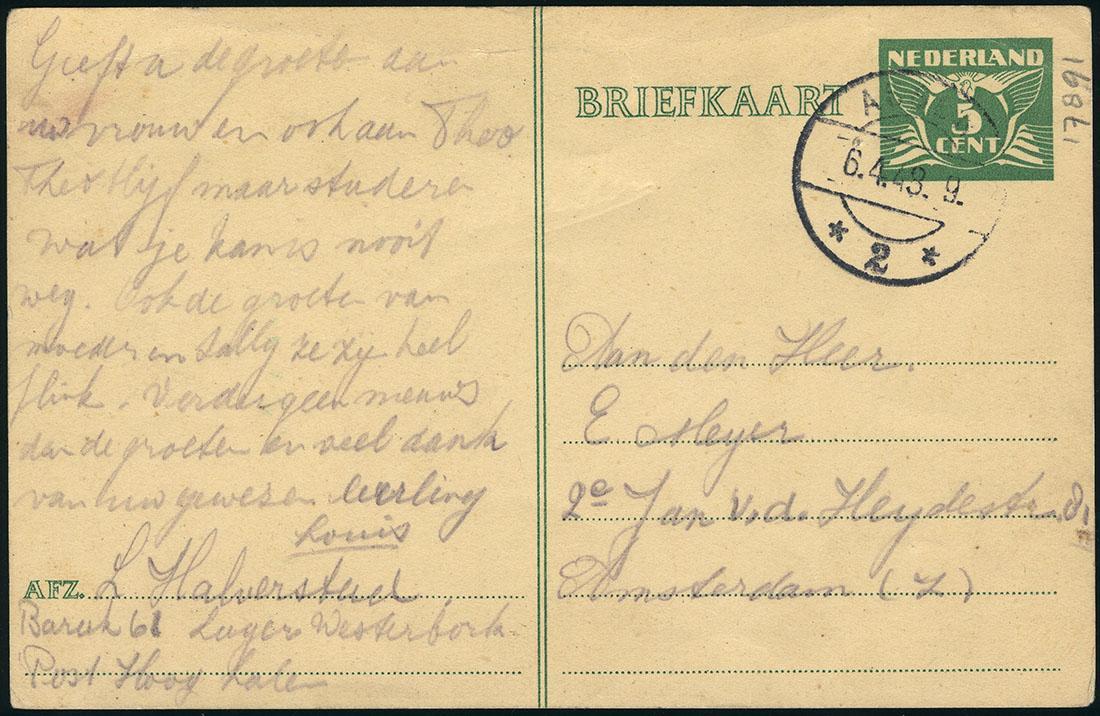 Geeft u de groeten aan
uw vrouw en ook aan Theo
Theo blijf maar studeren
wat je kan is nooit
weg. Ook de groeten van
moeder en Sally ze zijn heel
flink. Verder geen nieuws
dan de groeten en veel dank
van uw gewezen leerling
Louis
AFZ. L Halverstad
Barak 61 Lager Westerbork
Post Hoog halen
BRIEFKAART
NEDERLAND
5
CENT
6.4.43. 9.
* 2 *
17891
Aan den Heer.
E Meyer
2e Jan v.d. Heydestr.
Amsterdam (Z)